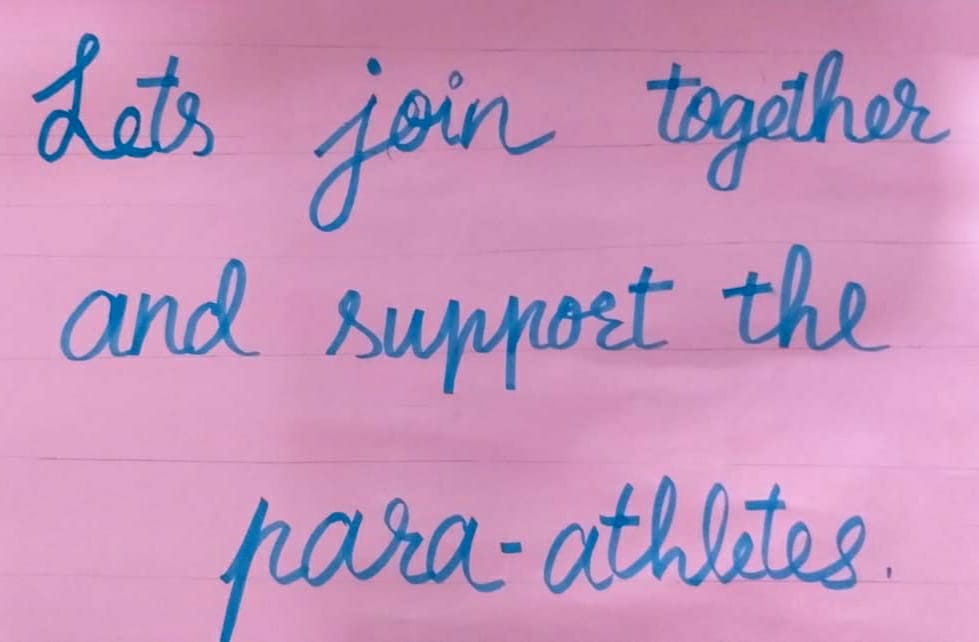 Lets join together
and support the
para-athletes.